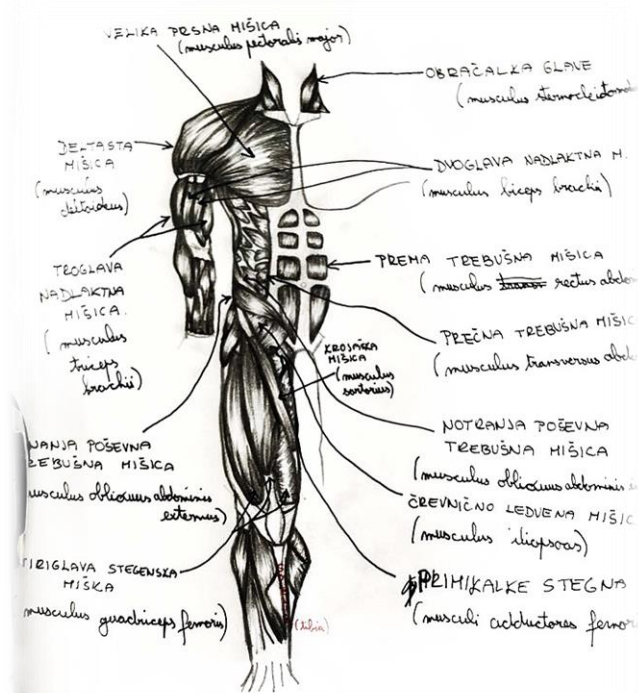 VELIKA PRSNA MIŠICA
(musculus pectoralis major)
OBRAČALKA GLAVE
(musculus sternocleidomas
DELTASTA
MIŠICA
(musculus
deltoideus)
DVOGLAVA NADLAKTNA M.
(musculus biceps brachii)
TROGLAVA
NADLAKTNA
MIŠICA.
(musculus
triceps
brachii)
PREMA TREBUŠNA MIŠICA
(musculus rectus abdo
PREČNA TREBUŠNA MIŠIC
(musculus transversus abd
KROJAŠKA
MIŠICA
(musculus
sartorius)
NOTRANJA POŠEVNA
TREBUŠNA MIŠICA
(musculus obliquus abdominis i
NANJA POŠEVNA
REBUŠNA MIŠICA
usculus obliquus abdominis
externus)
ČREVNIČNO LEDVENA MIŠIC
(musculus iliopsoas)
TIRIGLAVA STEGENSKA
MIŠKA
musculus quadriceps femoris)
PRIMIKALKE STEGNA
(musculi adductores femor
(tibia)